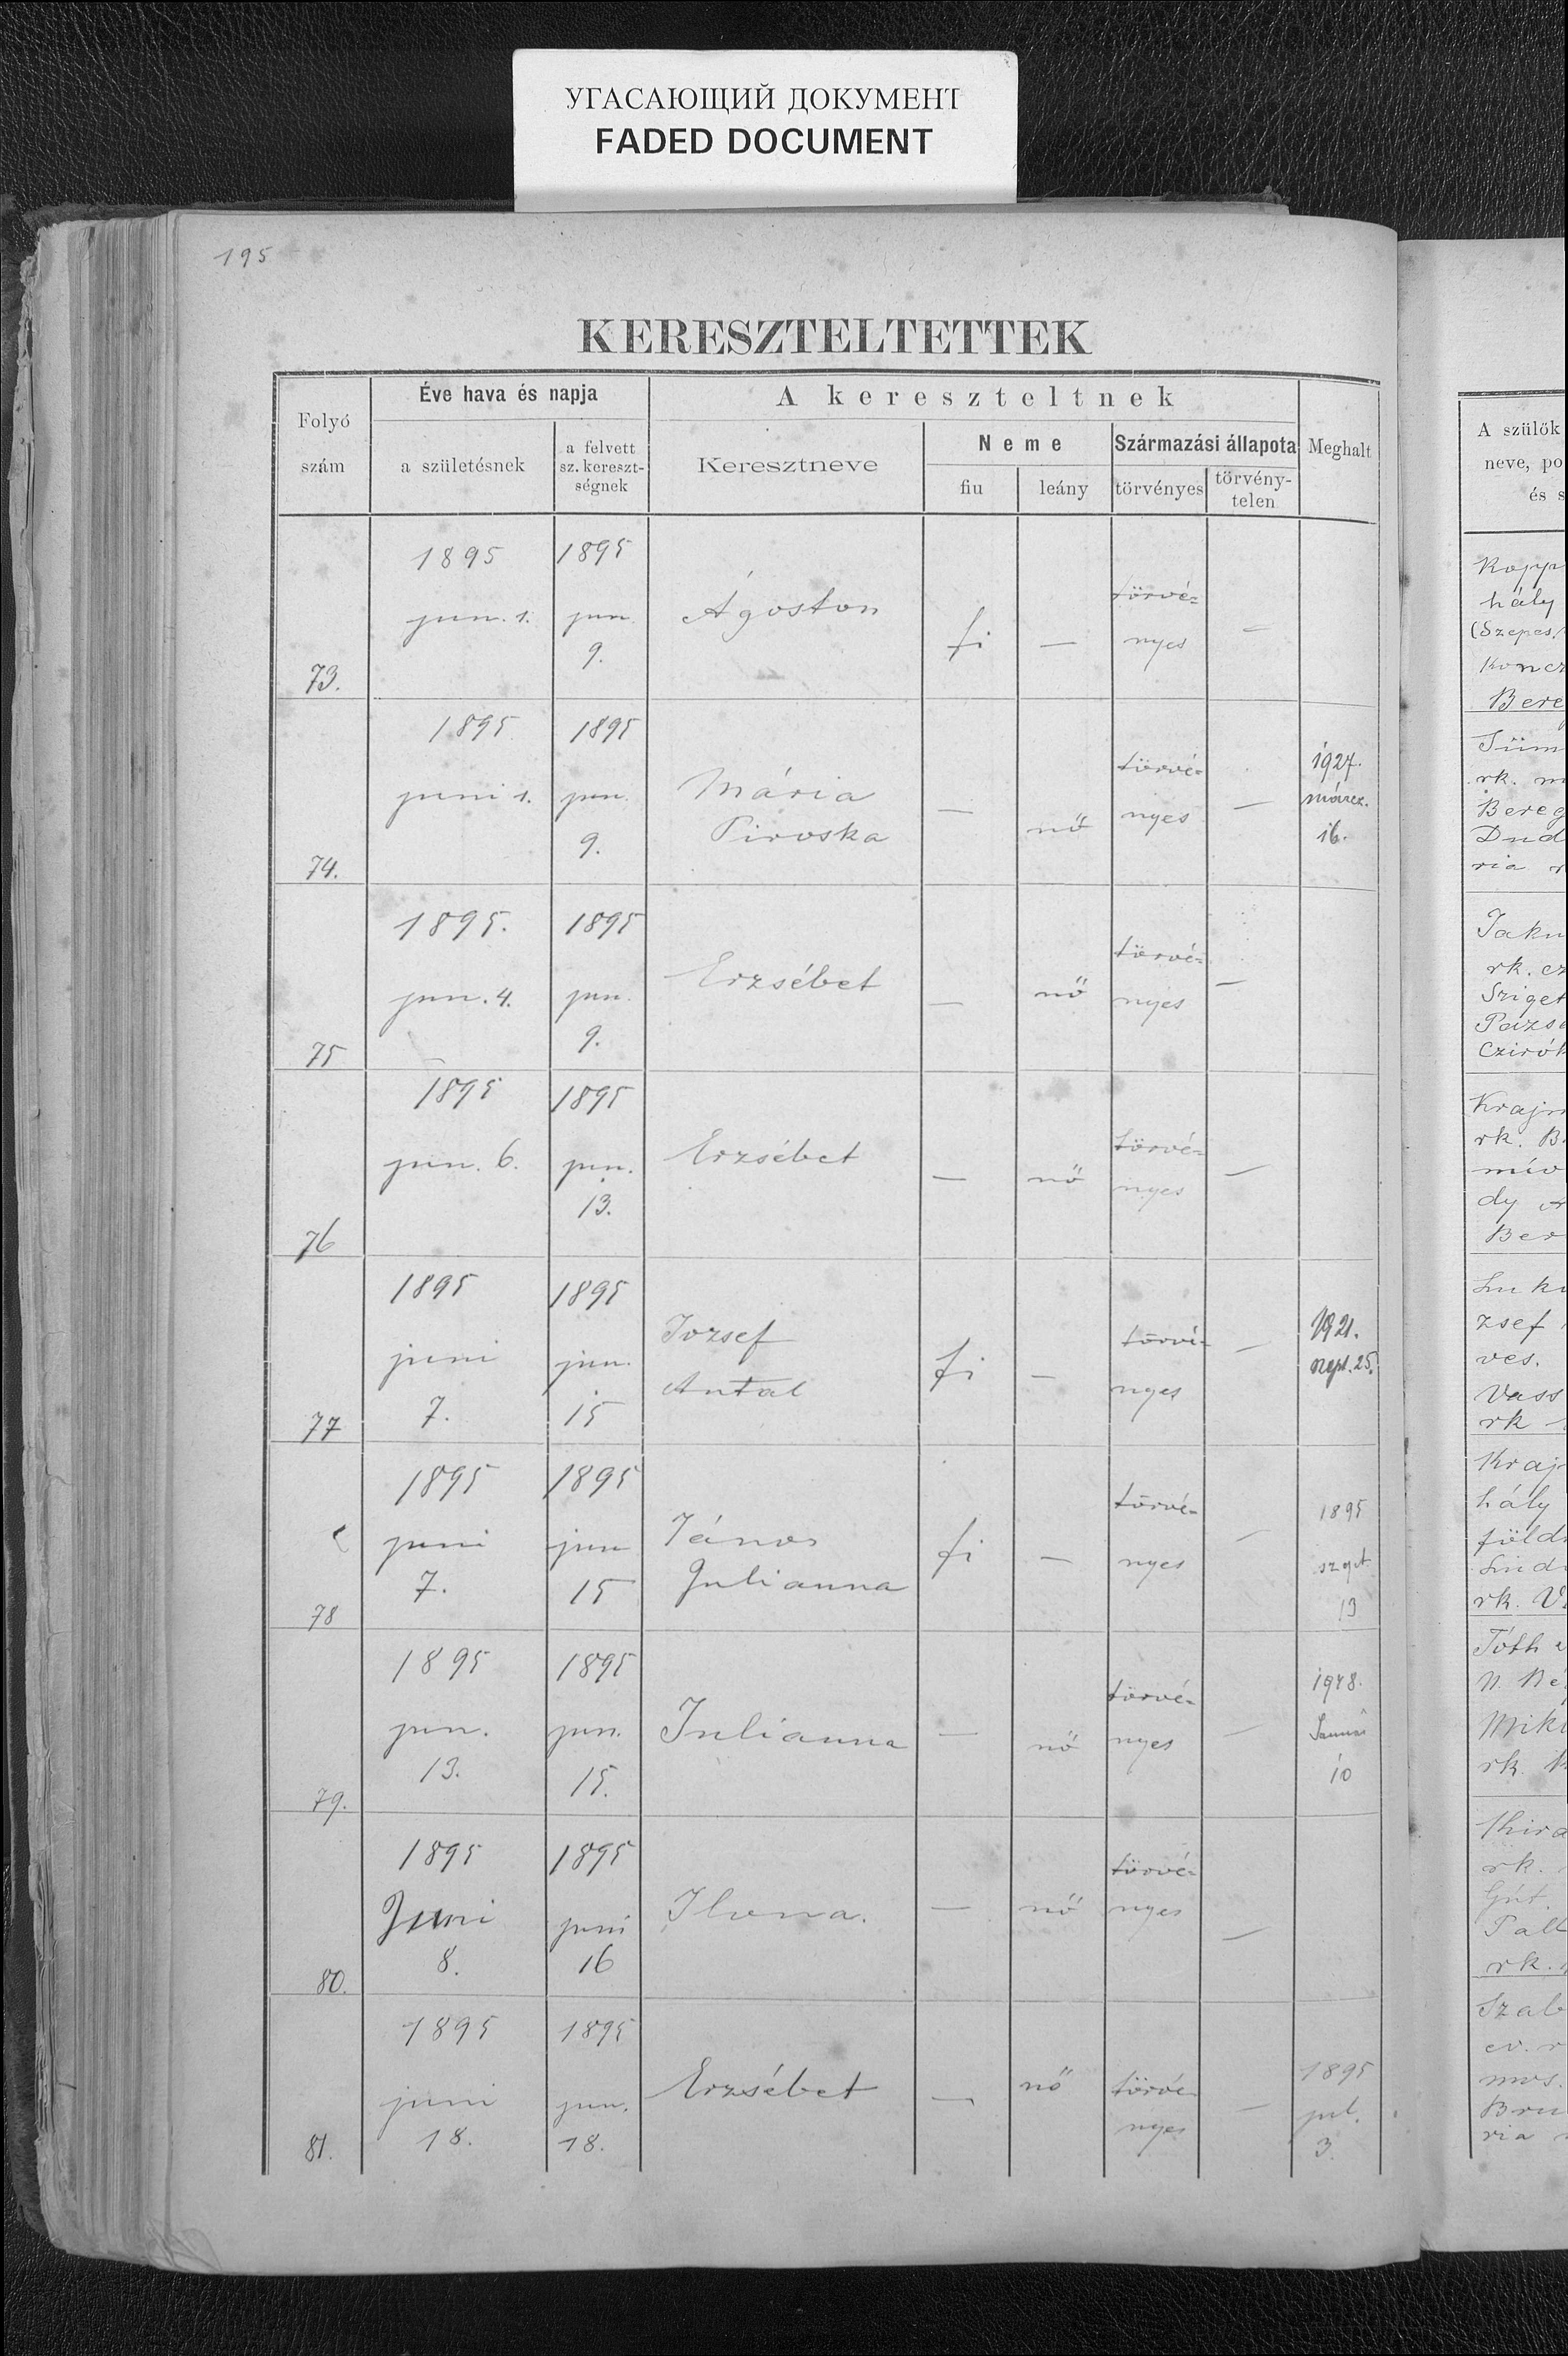 УГАСАЮЩИЙ ДОКУМЕНТ
FADED DOCUMENT
195
KERESZTELTETTEK
Folyó szám
Éve hava és napja
a születésnek
a felvett sz. kereszt-ségnek
A kereszteltnek
Keresztneve
Neme
fiu
leány
Származási állapota
törvényes
törvény-telen
Meghalt
73.
1895
jun. 1.
1895
jun.
9.
Ágoston
fi
—
törvé=
nyes
—
74.
1895
juni 1.
1895
jun.
9.
Mária
Piroska
—
nő
törvé=
nyes
—
1927.
márcz.
16.
75
1895.
jun. 4.
1895
jun.
9.
Erzsébet
—
nő
törvé=
nyes
—
76
1895
jun. 6.
1895
jun.
13.
Erzsébet
—
nő
törvé=
nyes
—
77
1895
juni
7.
1895
jun.
15
Jozsef
Antal
fi
—
törvé-
nyes
—
1921.
sept. 25.
78
1895
juni
7.
1895
jun
15
János
Julianna
fi
—
törvé-
nyes
—
1895
szept.
13
79.
1895
jun.
13.
1895
jun.
15.
Julianna
—
nő
törvé-
nyes
—
1948.
10
80.
1895
Juni
8.
1895
juni
16
Ilona.
—
nő
törvé=
nyes
—
81.
1895
juni
18.
1895
jun.
18.
Erzsébet
—
nő
törvé
nyes
—
1895
jul.
3.
A szülők
neve, po
és s
Kopp
hály
(Szepes
Koncz
Bere
Tüm
rk. m
Bereg
Dud
ria r
Jaku
rk. cz
Sziget
Pázs
Czirók
Krajn
rk. B
miv
dy
Ber
Luk
zsef
ves.
Vass
rk
Kraj
hály
föld
Lind
rk. V
Tóth
N. Be
Mik
rk.
Kira
rk.
Gút
Pall
rk.
Szab
ev. r
mos.
Bru
ria